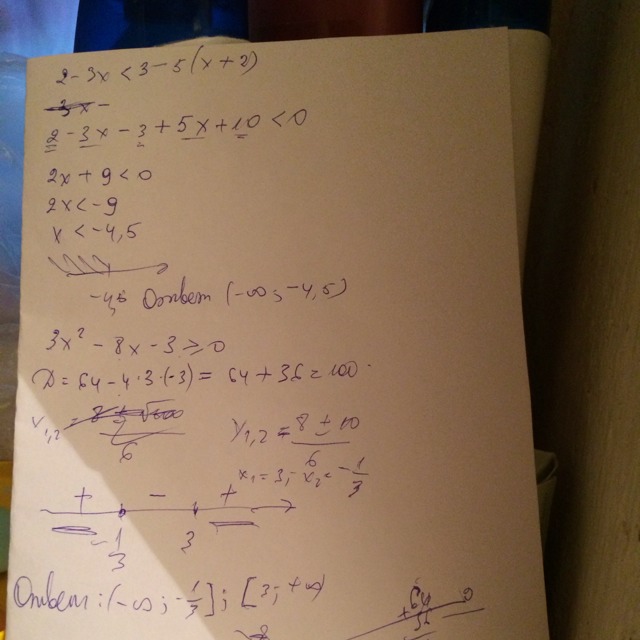 2 - 3x < 3 - 5(x + 2)
2 - 3x - 3 + 5x + 10 < 0
2x + 9 < 0
2x < -9
x < -4,5
-4,5 Ответ (-∞; -4,5)
3x² - 8x - 3 ≥ 0
D = 64 - 4·3·(-3) = 64 + 36 = 100
x₁,₂ = 8 ± 10 / 6
x₁ = 3; x₂ = -1/3
+ - +
-1/3 3
Ответ: (-∞; -1/3]; [3; +∞)